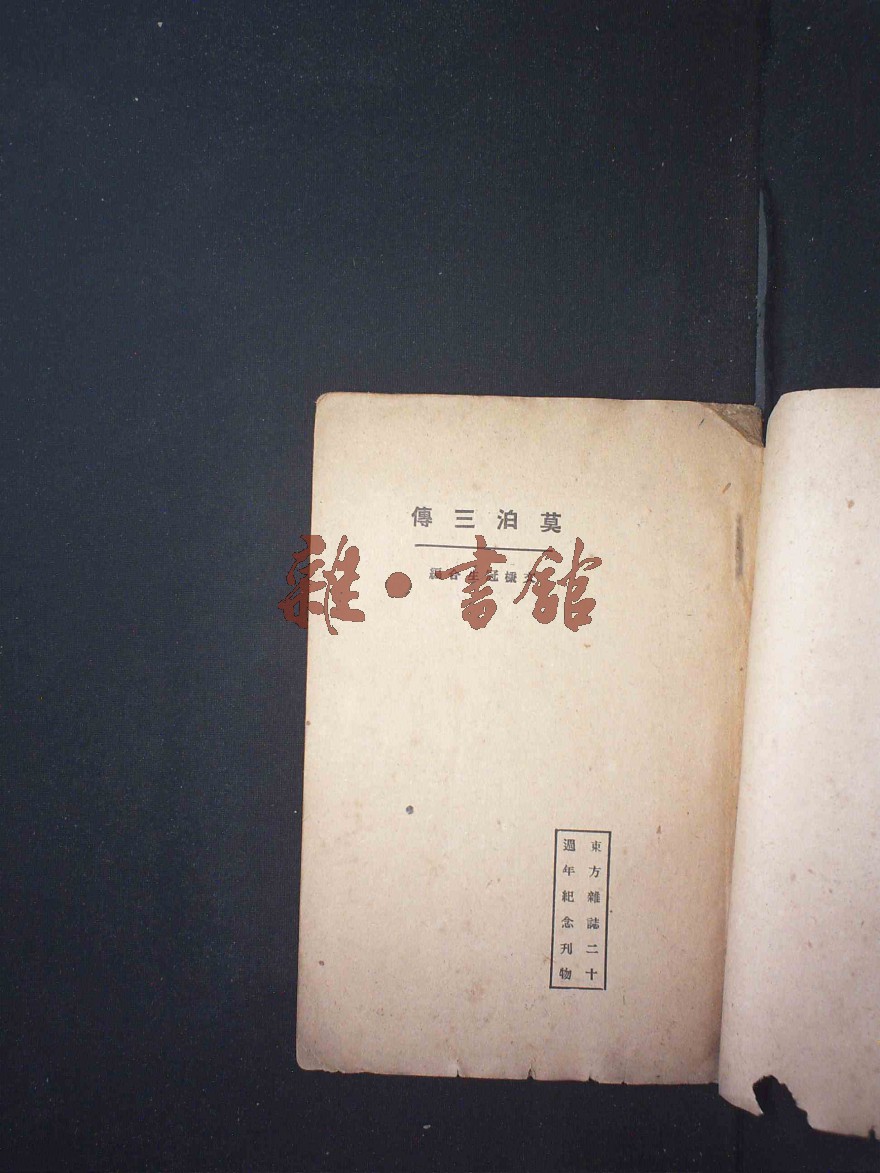 莫泊三傳
冠生合編
雜·書館
東方雜誌二十
週年紀念刊物